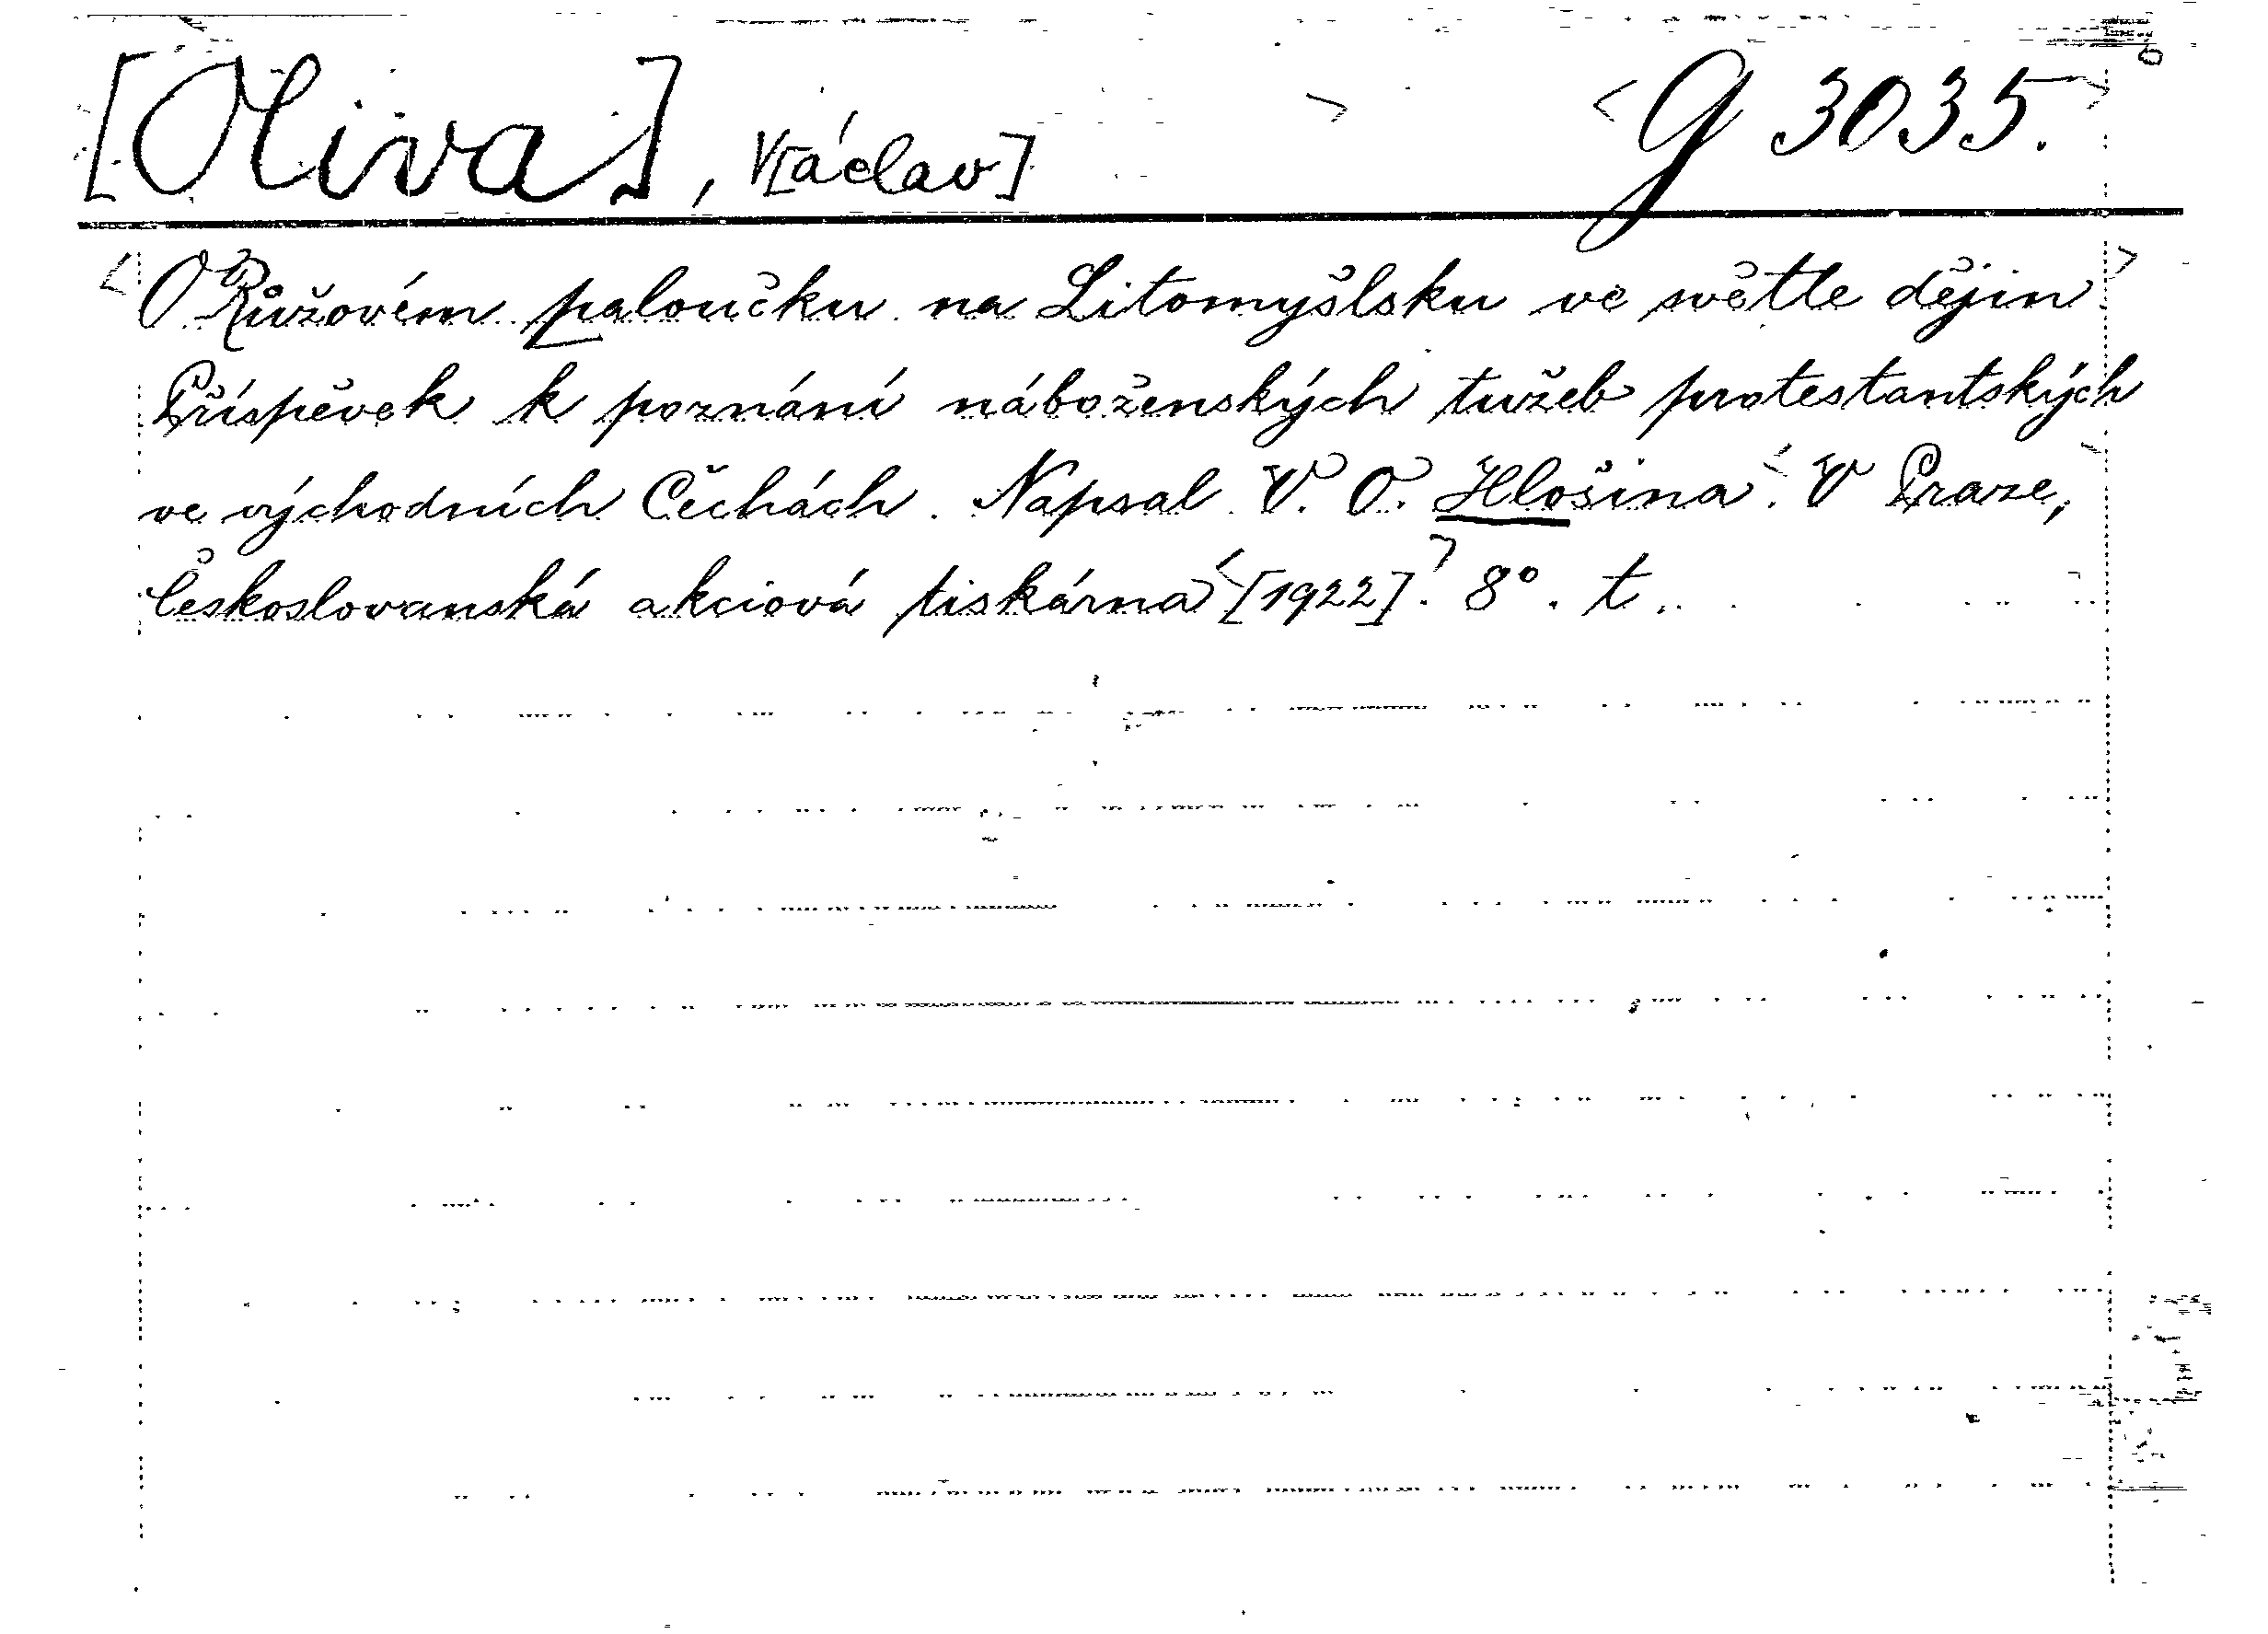 [Oliva], V[áclav] G 3035.
O Růžovém paloučku na Litomyšlsku ve světle dějin.
Příspěvek k poznání náboženských tužeb protestantských
ve východních Čechách. Napsal V. O. Hlošina. V Praze,
Československá akciová tiskárna [1922]. 8°. t.